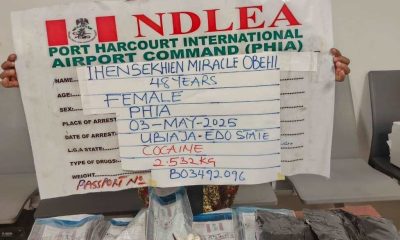 NDLEA
PORT HARCOURT INTERNATIONAL
AIRPORT COMMAND (PHIA)
NAME: IHENSEKHIEN MIRACLE OBEHI
AGE: 48 YEARS
SEX: FEMALE
PLACE OF ARREST PHIA
03-MAY-2025
L.G.A STATE UBIAJA-EDO STATE
TYPE OF DRUGS: COCAINE
2.532KG
PASSPORT NO B03492096